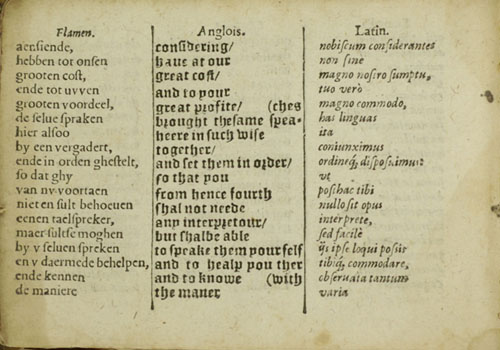 Flamen.
aensiende,
hebben tot onsen
grooten cost,
ende tot uwen
grooten voordeel,
de selue spraken
hier alsoo
by een vergadert,
ende in orden ghestelt,
so dat ghy
van nv voortaen
niet en sult behoeuen
eenen taelspreker,
maer sult se moghen
by v seluen spreken
en v daermede behelpen,
ende kennen
de maniere
Anglois.
considering/
haue at our
great cost/
and to your
great profite/ (ches
brought thesame spea-
heere in such wise
together/
and set them in order/
so that you
from hence fourth
shal not neede
any interpretour/
but shalbe able
to speake them yourself
and to healp you ther
and to knowe (with
the maner
Latin.
nobiscum considerantes
non sine
magno nostro sumptu,
tuo verò
magno commodo,
has linguas
ita
coniunximus
ordineq; disposuimus
vt
posthac tibi
nullo sit opus
interprete,
sed facilè
ijs ipse loqui possis
tibiq; commodare,
obseruata tantum
varia